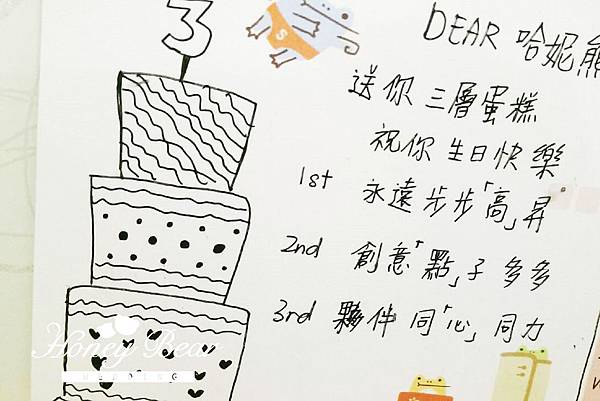 3
S
DEAR 哈妮熊
送你 三層蛋糕
祝你 生日快樂
1st 永遠步步「高」昇
2nd 創意「點」子 多多
3rd 夥伴 同「心」同力
Honey Bear
WEDDING